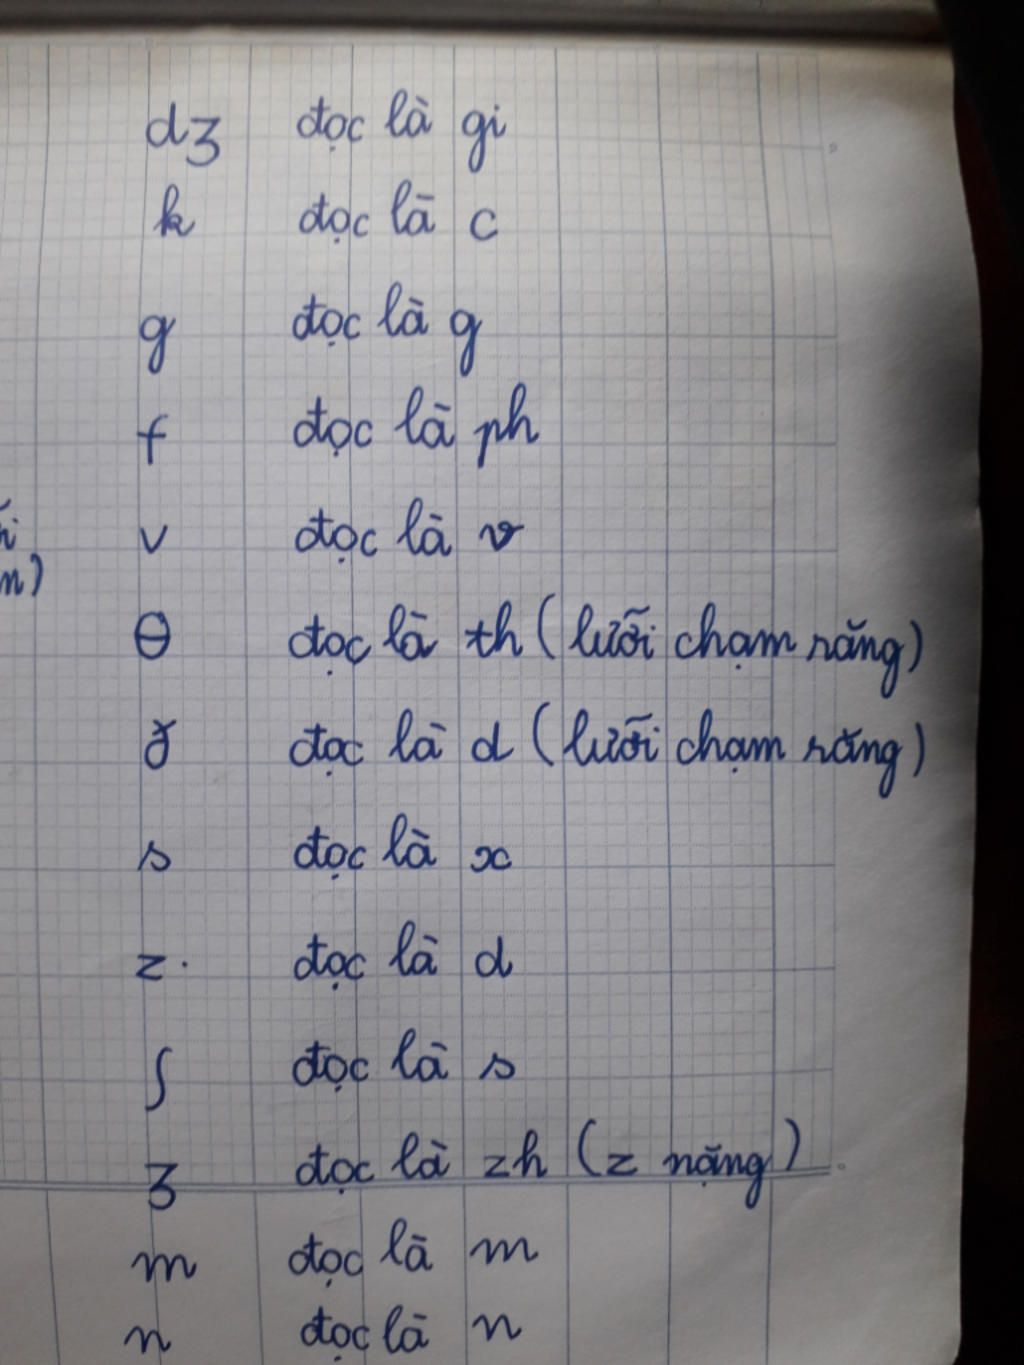 dʒ đọc là gi
k đọc là c
g đọc là g
f đọc là ph
v đọc là v
θ đọc là th (lưỡi chạm răng)
ð đọc là d (lưỡi chạm răng)
s đọc là x
z đọc là d
ʃ đọc là s
ʒ đọc là zh (z nặng)
m đọc là m
n đọc là n